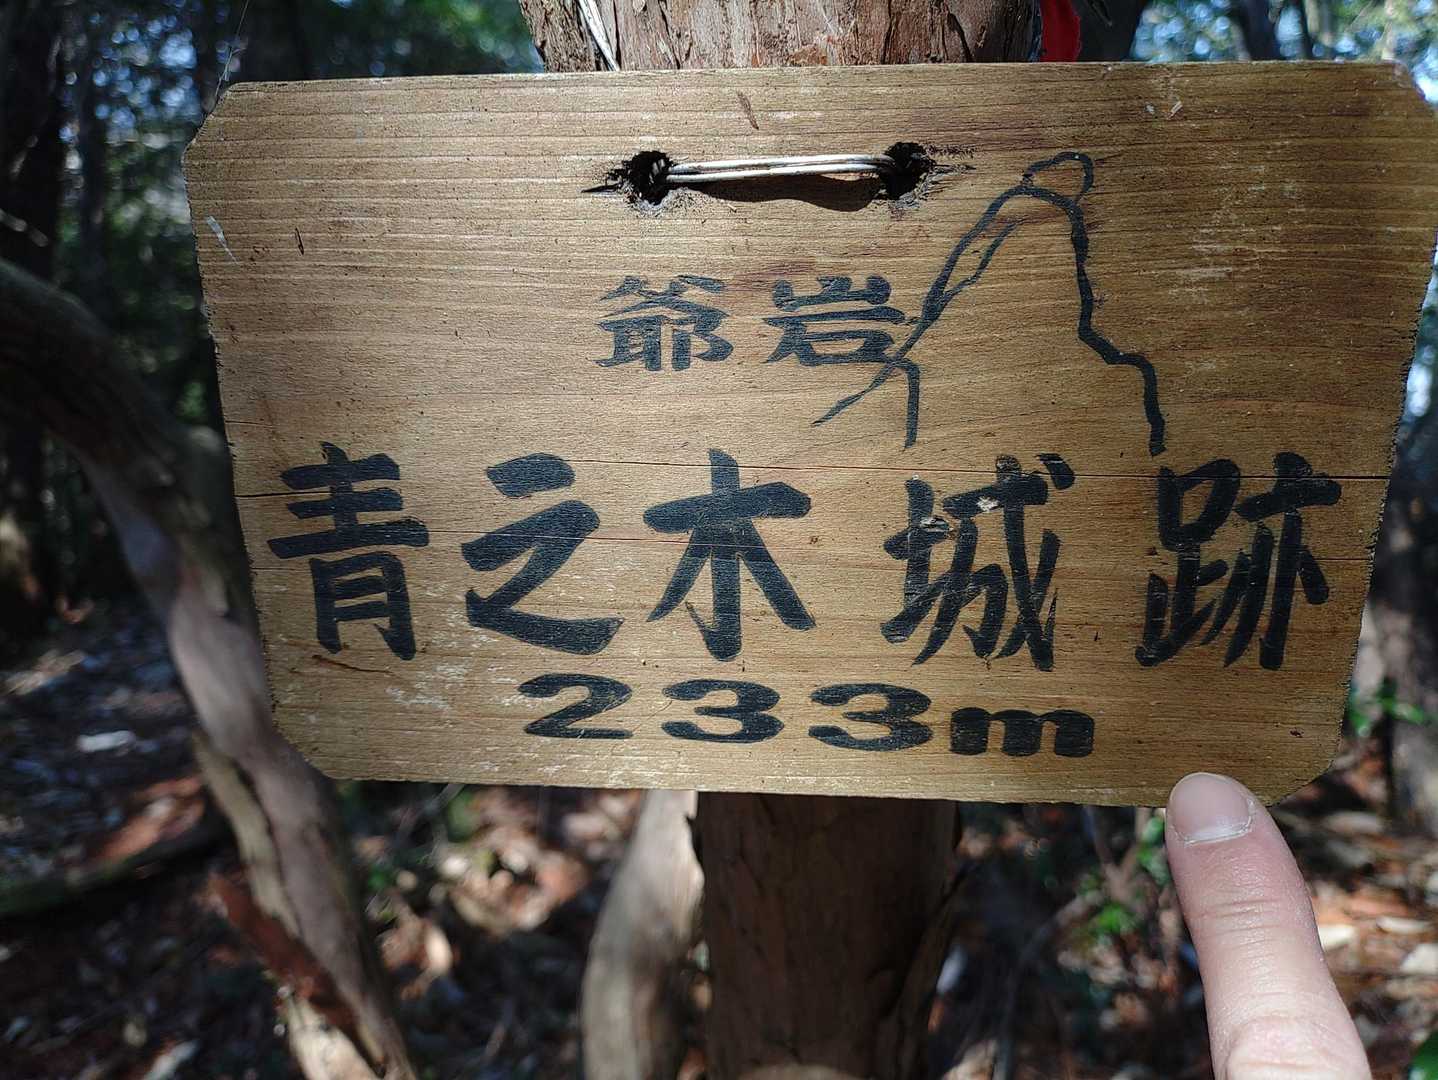 爺岩
青之木城跡
233m